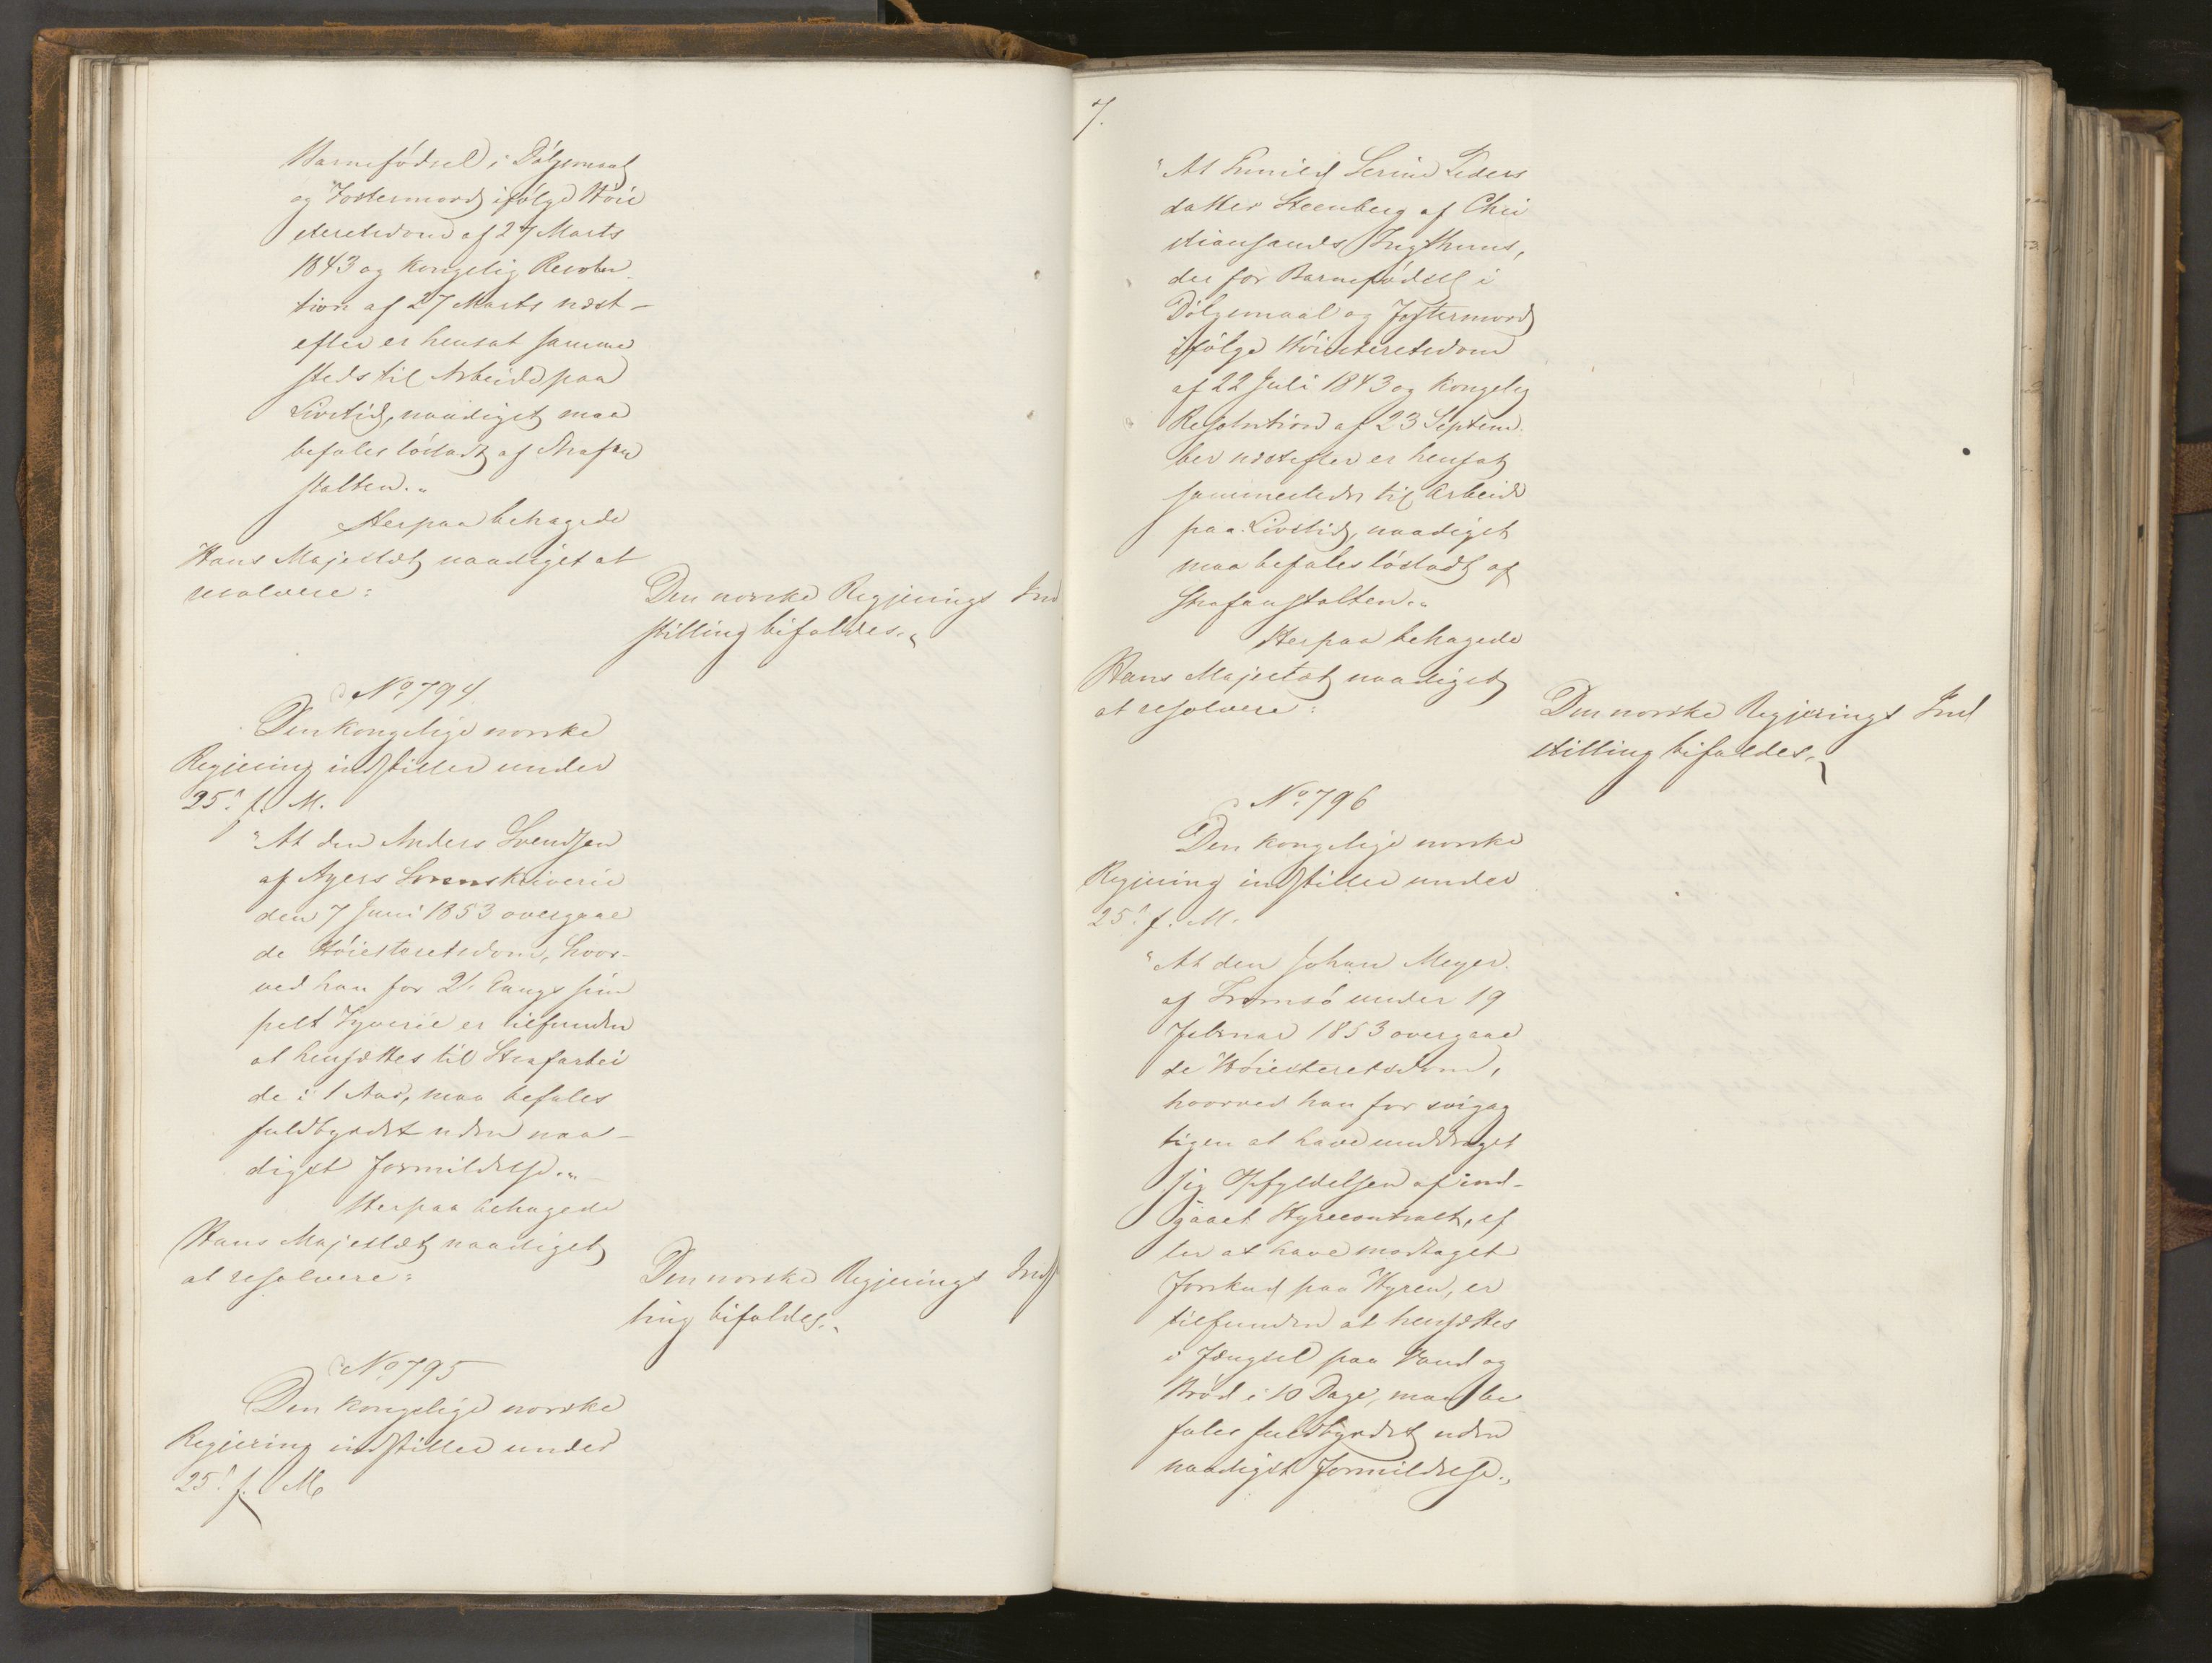 Barnefødsel i Dølgsmaal
og Fostermord ifølge Høie
steretsdom af 27 Marts
1843 og Kongelig Resolu-
tion af 27 Marts næst-
efter er hensat samme
steds til Arbeide paa
Livstid, naadigst maa
befales løsladt af Strafan
stalten."
Herpaa behagede
Hans Majestæt naadigst at
resolvere:
Den norske Regjerings Ind
stilling bifaldes."
No 794
Den kongelige norske
Regjering indstiller under
25. f. M.
"At den Anders Svendsen
af Agers Sorenskriverie
den 7 Juni 1853 overgaae
de Høiesteretsdom, hvor-
ved han for 2. Gangs sim
pelt Tyverie er tilfunden
at hensættes til Strafarbei
de i 1 Aar, maa befales
fuldbyrdet uden naa-
digst Formildelse."
Herpaa behagede
Hans Majestæt naadigst
at resolvere:
Den norske Regjerings Indst
ling bifaldes."
No 795
Den kongelige norske
Regjering indstiller under
25. f. M.
7.
"At Serine Peders
datter Steenberg af Chri
stiansands Tugthuus,
der for Barnefødsel i
Dølgsmaal og Fostermord
ifølge Høiesteretsdom
af 22 Juli 1843 og Kongelig
Resolution af 23 Septem
ber næstefter er hensat
sammesteds til Arbeide
paa Livstid, naadigst
maa befales løsladt af
Strafanstalten."
Herpaa behagede
Hans Majestæt naadigst
at resolvere:
Den norske Regjerings Ind
stilling bifaldes."
No 796
Den kongelige norske
Regjering indstiller under
25. f. M.
"At den Johan Meyer
af Tromsø under 19
Februar 1853 overgaae
de Høiesteretsdom,
hvorved han for svigag
tigen at have unddraget
sig Opfyldelsen af ind-
gaaet Hyrecontract, ef
ter at have modtaget
Forskud paa Hyren, er
tilfunden at hensættes
i Fængsel paa Vand og
Brød i 10 Dage, maa be
fales fuldbyrdet uden
naadigst Formildelse."